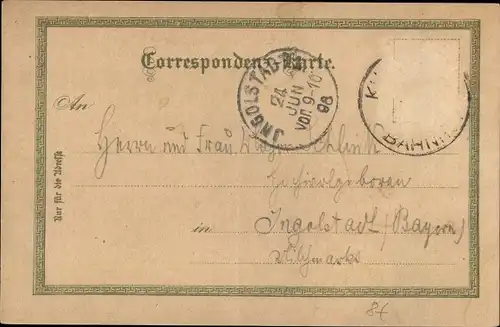 Correspondenz-Karte.
JNGOLSTADT
24
JUN
Vor. 9-10
98
BAHNH
An
Herrn und Frau
Hochwolgeboren
in Ingolstadt (Bayern)
Nur für die Adresse
84